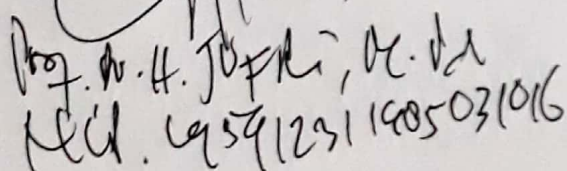 Prof. Dr. H. Jufri, M.Pd
NIP. 195912311985031016